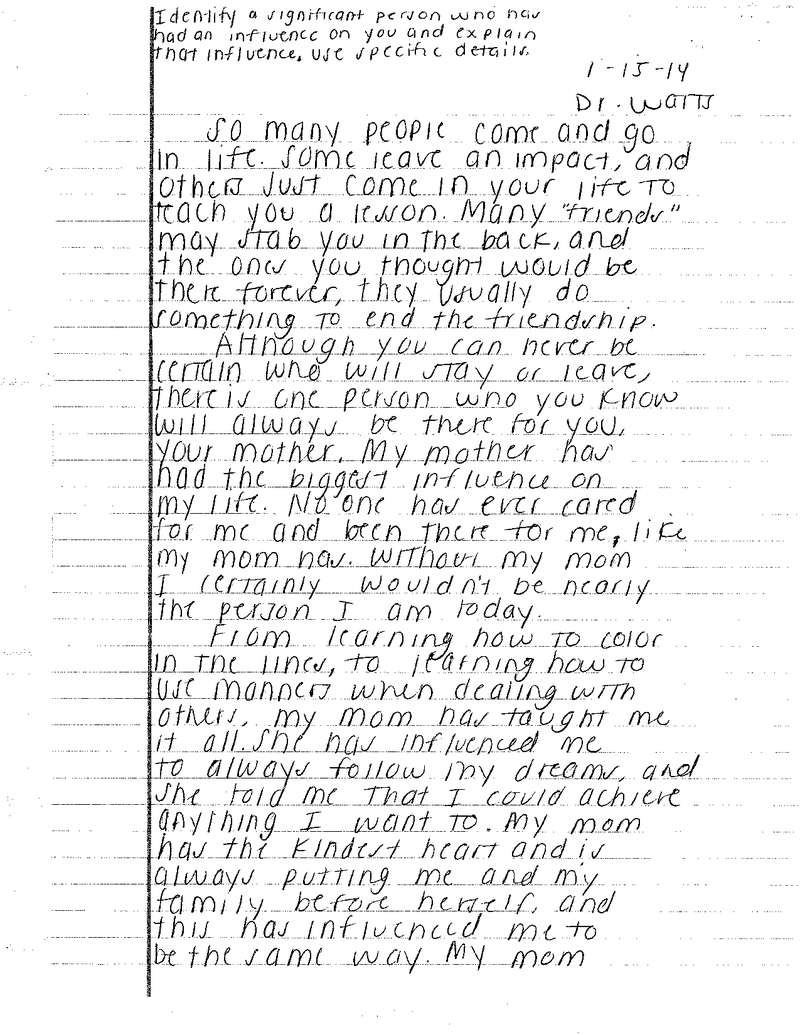 Identify a significant person who has
had an influence on you and explain
that influence, use specific details.
1-15-14
Dr. Watts
So many people come and go
in life. Some leave an impact, and
others just come in your life to
teach you a lesson. Many "friends"
may stab you in the back, and
the ones you thought would be
there forever, they usually do
something to end the friendship.
Although you can never be
certain who will stay or leave,
there is one person who you know
will always be there for you,
your mother. My mother has
had the biggest influence on
my life. No one has ever cared
for me and been there for me, like
my mom has. Without my mom
I certainly wouldn't be nearly
the person I am today.
From learning how to color
in the lines, to learning how to
use manners when dealing with
others, my mom has taught me
it all. She has influenced me
to always follow my dreams, and
she told me that I could achieve
anything I want to. My mom
has the kindest heart and is
always putting me and my
family before herself, and
this has influenced me to
be the same way. My mom